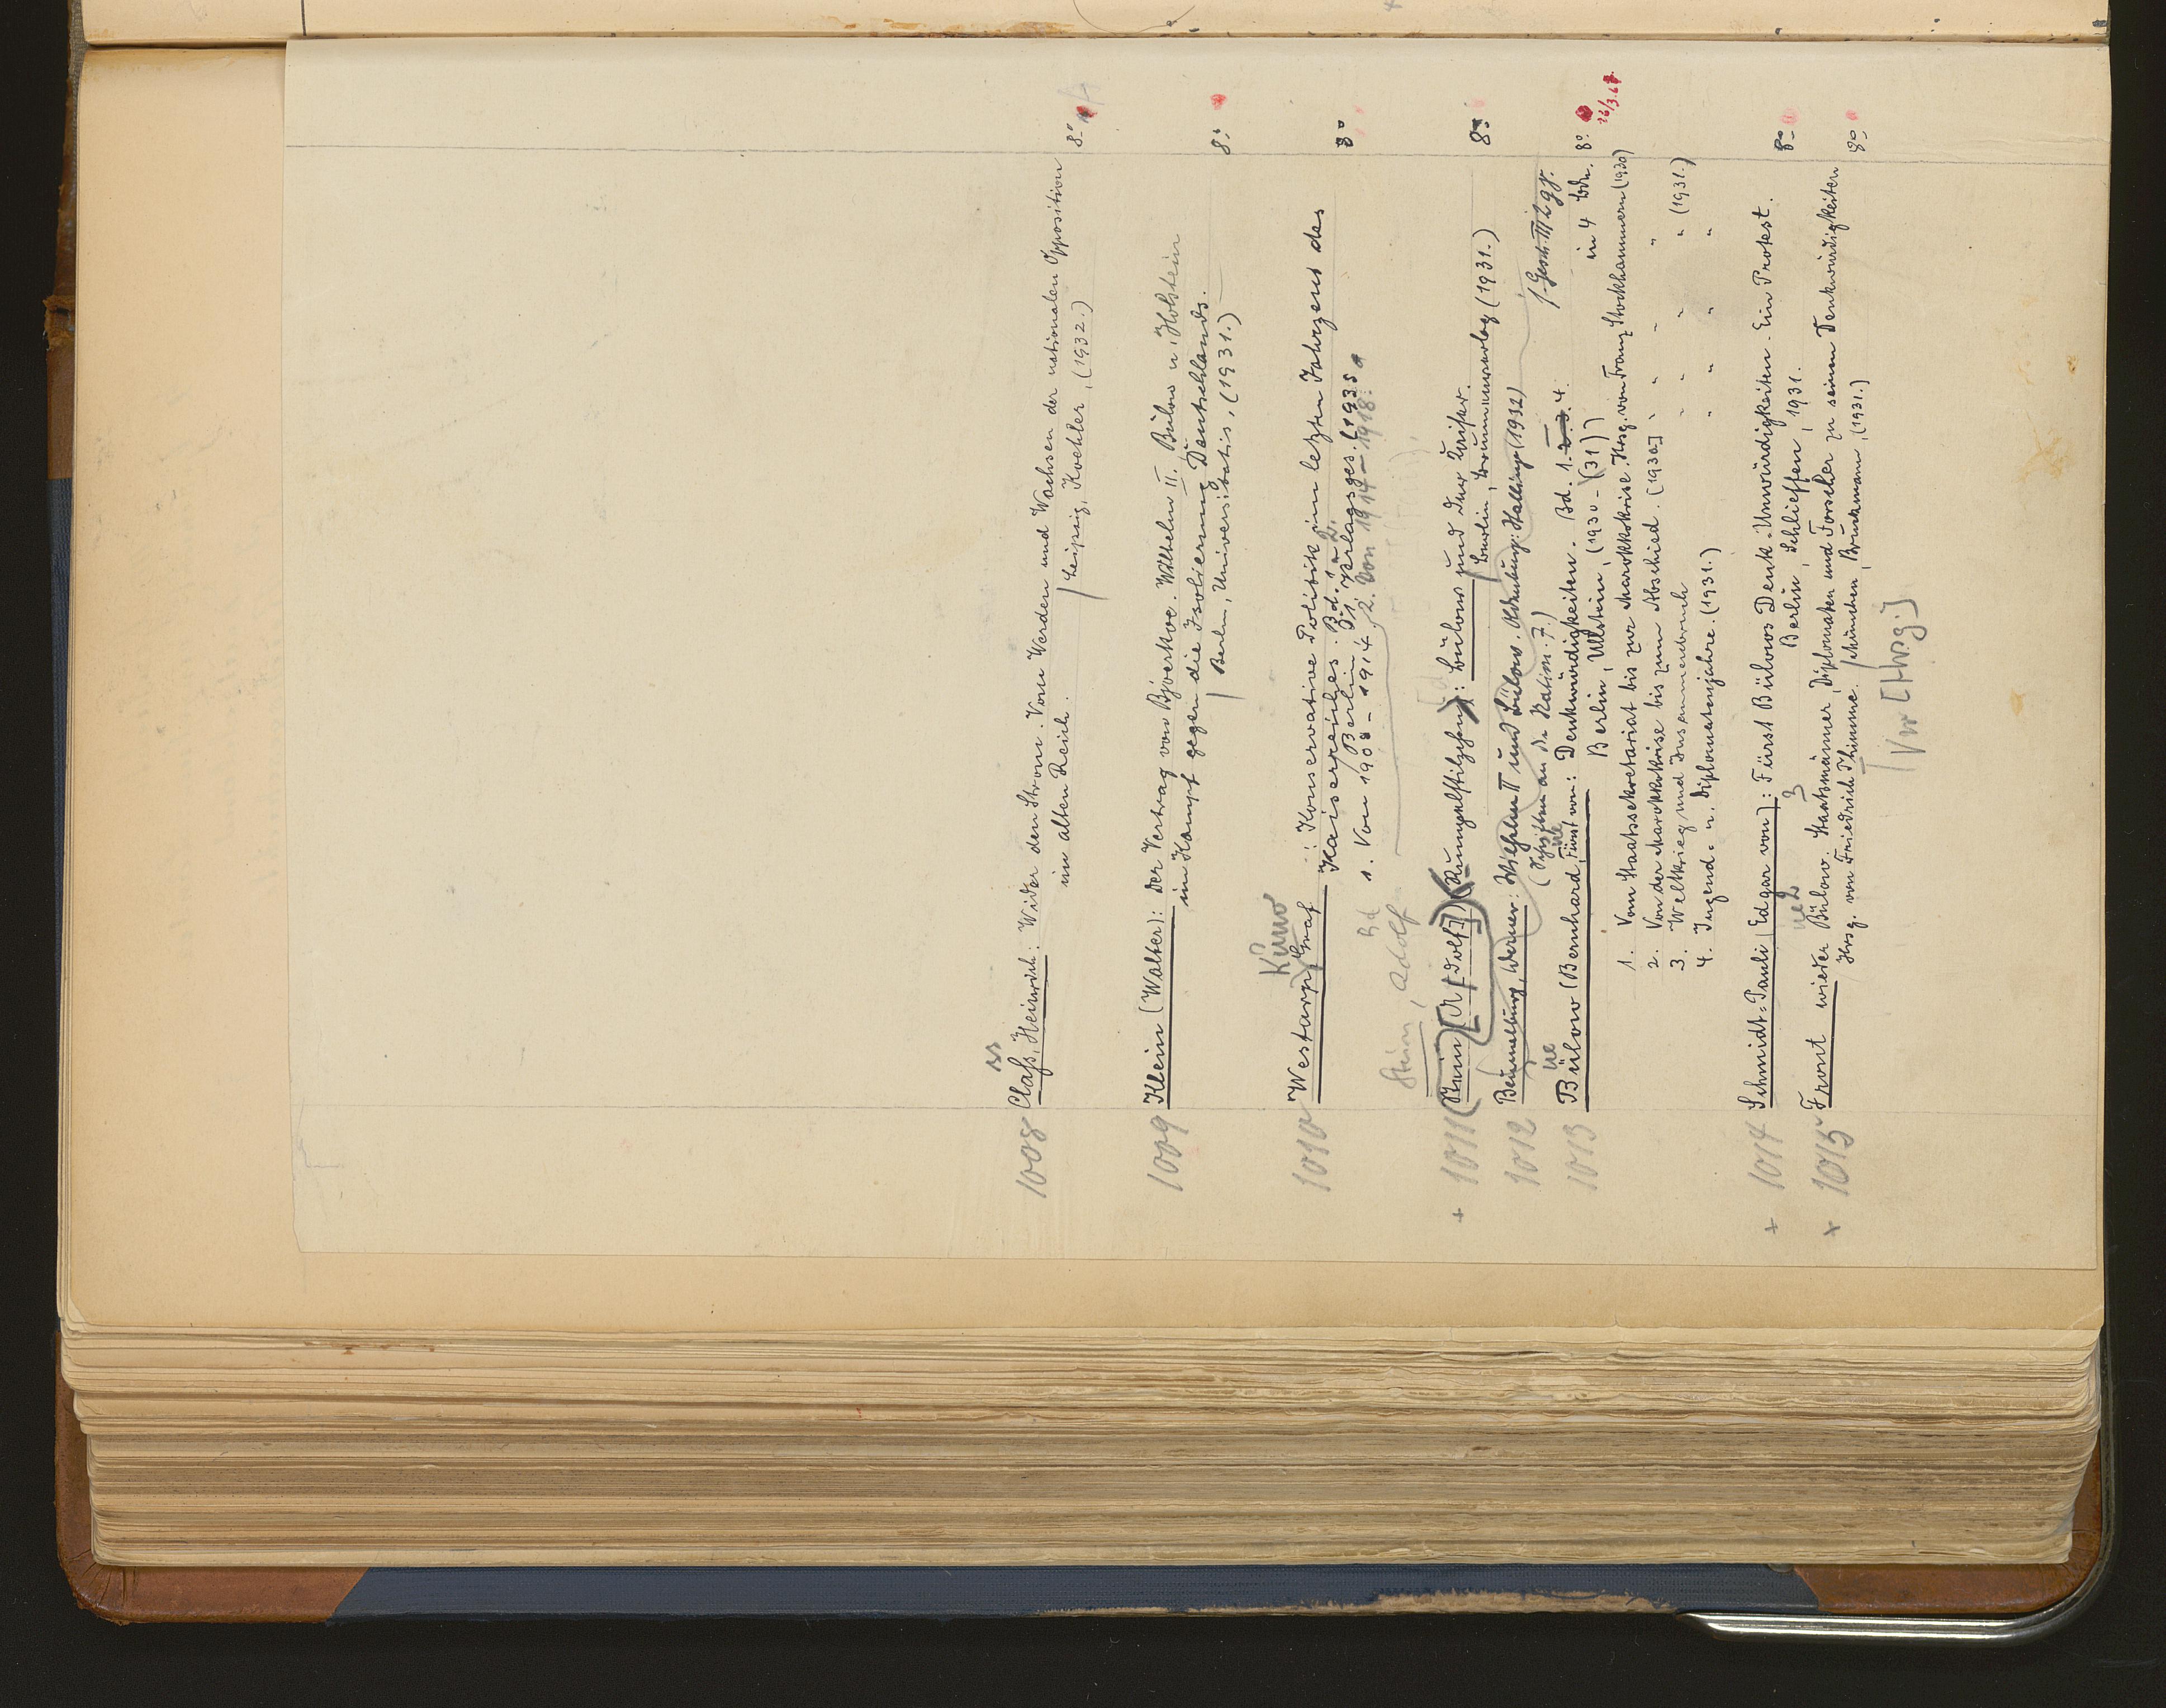 ss
1008 Claß, Heinrich: Wider den Strom. Vom Werden und Wachsen der nationalen Opposition
im alten Reich. / Leipzig, Koehler, (1932.) 8°
1009 Klein (Walter): Der Vertrag von Bjoerkoe. Wilhelm II. Bülow u. Holstein
im Kampf gegen die Isolierung Deutschlands.
/ Berlin, Universitatis, (1931.) 8°
Kuno
1010 Westarp, Graf : Konservative Politik im letzten Jahrzent des
Kaiserreiches. Bd. 1. 2. 8°
/ Berlin: Dt. Verlagsges. (1935.
1. Von 1908 - 1914. 2. Von 1914 - 1918.
Stein, Adolf
+ 1011 (Stein) [A[dolf]] (Rumpelstilzchen): Bülow und der Kaiser.
/ Berlin, Brunnenverlag (1931.) 8°
1012 Beumelburg, Werner: Wilhelm II und Bülow. Oldenburg: Stalling (1932)
(Schriften an die Nation. 7.) f. Gesch. III 298.
ue
1013 Bülow (Bernhard, Fürst von: Denkwürdigkeiten. Bd. 1. 2. 3. 4. in 4 Bdn. 8°
Berlin, Ullstein, (1930 - (31)) 26/3.68
1. Vom Staatssekretariat bis zur Marokkokrise. Hrsg. von Franz Stockhammern (1930)
2. Von der Marokkokrise bis zum Abschied. [1930] " " " "
3. Weltkrieg und Zusammenbruch " " " " (1931.)
4. Jugend- u. Diplomatenjahre. (1931.) " " " "
+ 1014 Schmidt-Pauli (Edgar von): Fürst Bülows Denk-Unwürdigkeiten. Ein Protest.
Berlin, Schlieffen, 1931. 8°
ue2 3
+ 1015 Front wieder Bülow. Staatsmänner, Diplomaten und Forscher zu seinen Denkwürdigkeiten
Hrsg. von Friedrich Thimme. / München, Bruckmann, (1931.) 8°
/ Vw [Hrsg.]